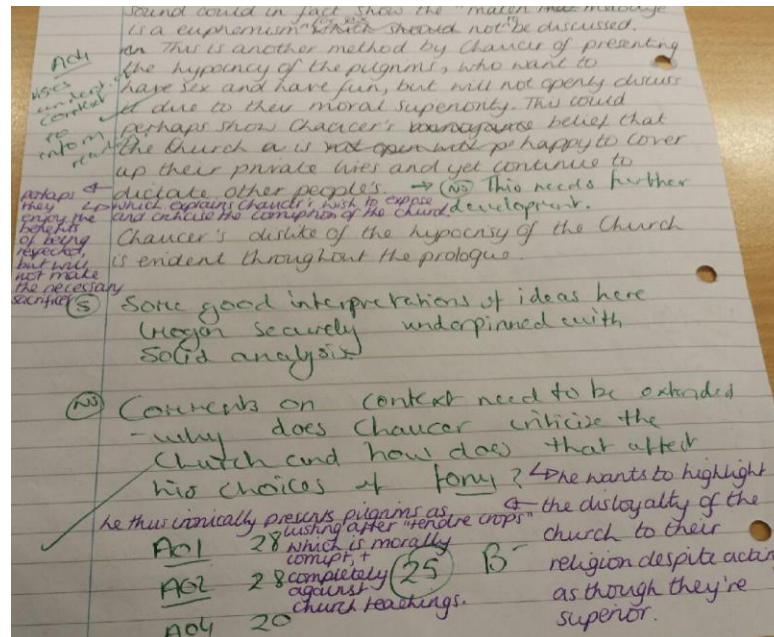 sound could in fact show the
is a euphemism which should not be discussed.
This is another method by Chaucer of presenting
the hypocricy of the pilgrims, who want to
have sex and have fun, but will not openly discuss
it due to their moral superiority. This could
perhaps show Chaucer's belief that
the Church is happy to cover
up their private lives and yet continue to
dictate other people's. → NS This needs further
development.
which explains Chaucer's wish to expose
and criticise the corruption of the church.
Chaucer's dislike of the hypocrisy of the Church
is evident throughout the prologue.
AO4
uses
context
to
inform
perhaps
they
enjoy the
benefits
of being
respected,
but will
not make
the necessary
sacrifices
S Some good interpretations of ideas here
securely underpinned with
solid analysis
NS Comments on context need to be extended
- why does Chaucer criticize the
Church and how does that affect
his choices of form?
he wants to highlight
the disloyalty of the
church to their
religion despite acting
as though they're
superior.
he thus ironically presents pilgrims as
lusting after "tendre crops"
which is morally
corrupt, +
completely
against
church teachings.
AO1 28
AO2 28
AO4 20
25 B-